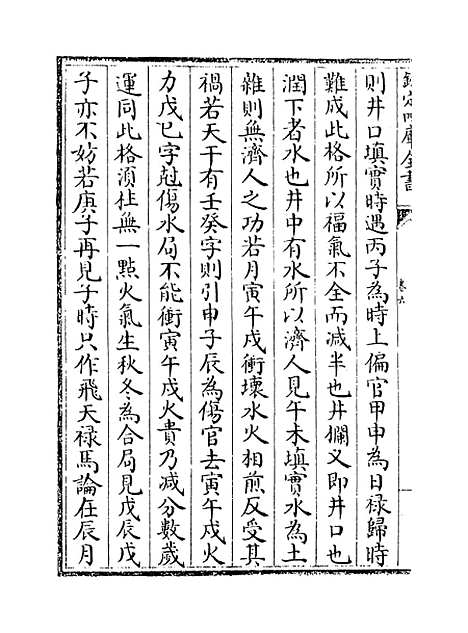 欽定四庫全書
卷六
則井口填實時遇丙子為時上偏官甲申為日祿歸時
難成此格所以福氣不全而減半也井攔义即井口也
潤下者水也井中有水所以濟人見午未填實水為土
雜則無濟人之功若月寅午戌衝壞水火相煎反受其
禍若天干有壬癸字則引申子辰為傷官去寅午戌火
力戊己字尅傷水局不能衝寅午戌火貴乃減分數歲
運同此格須柱無一點火氣生秋冬為合局見戊辰戊
子亦不妨若庚子再見子時只作飛天祿馬論在辰月